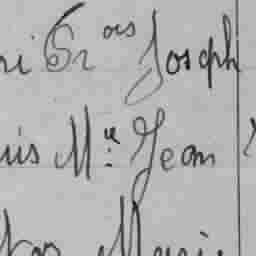 ni Fr ois Joseph
uis Me Jean
Marie